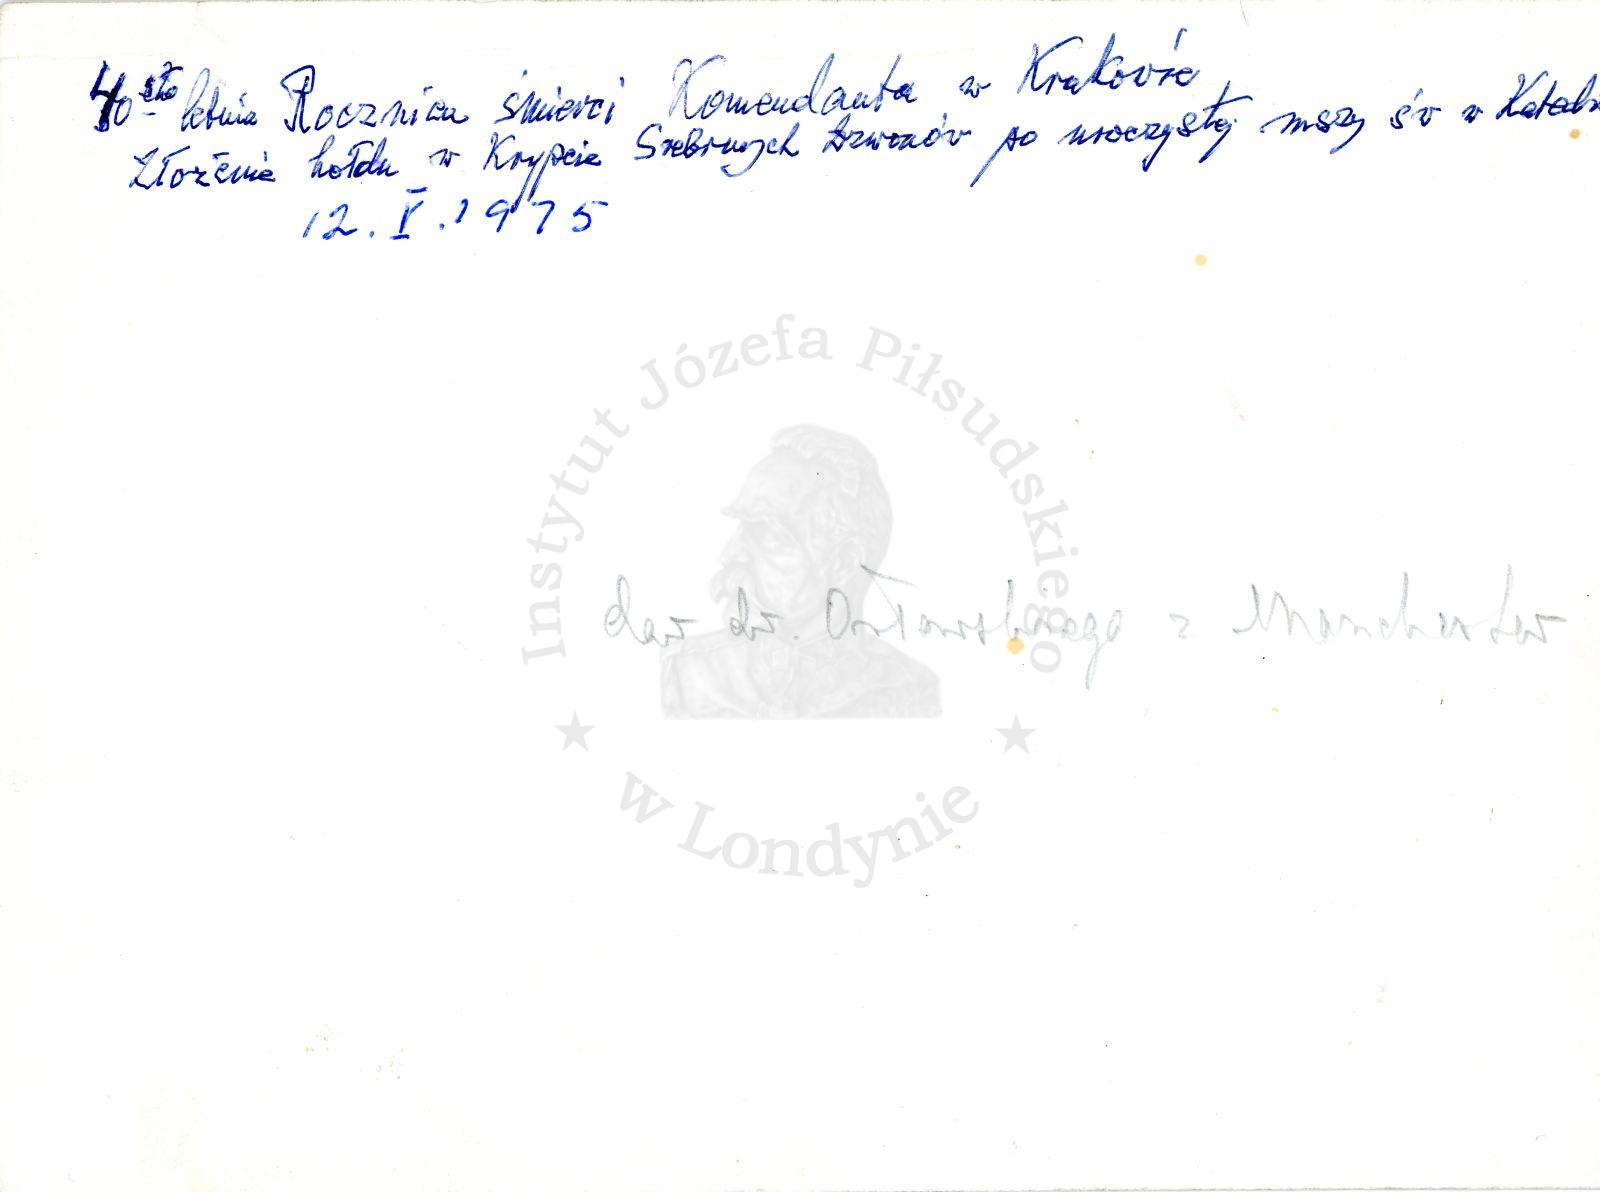 40-sto letnia Rocznica śmierci Komendanta w Krakowie
Złożenie hołdu w Krypcie Srebrnych Dzwonów po uroczystej mszy św w Kated
12.V.1975
Instytut Józefa Piłsudskiego
dar dr. Orłowskiego z Manchester
w Londynie